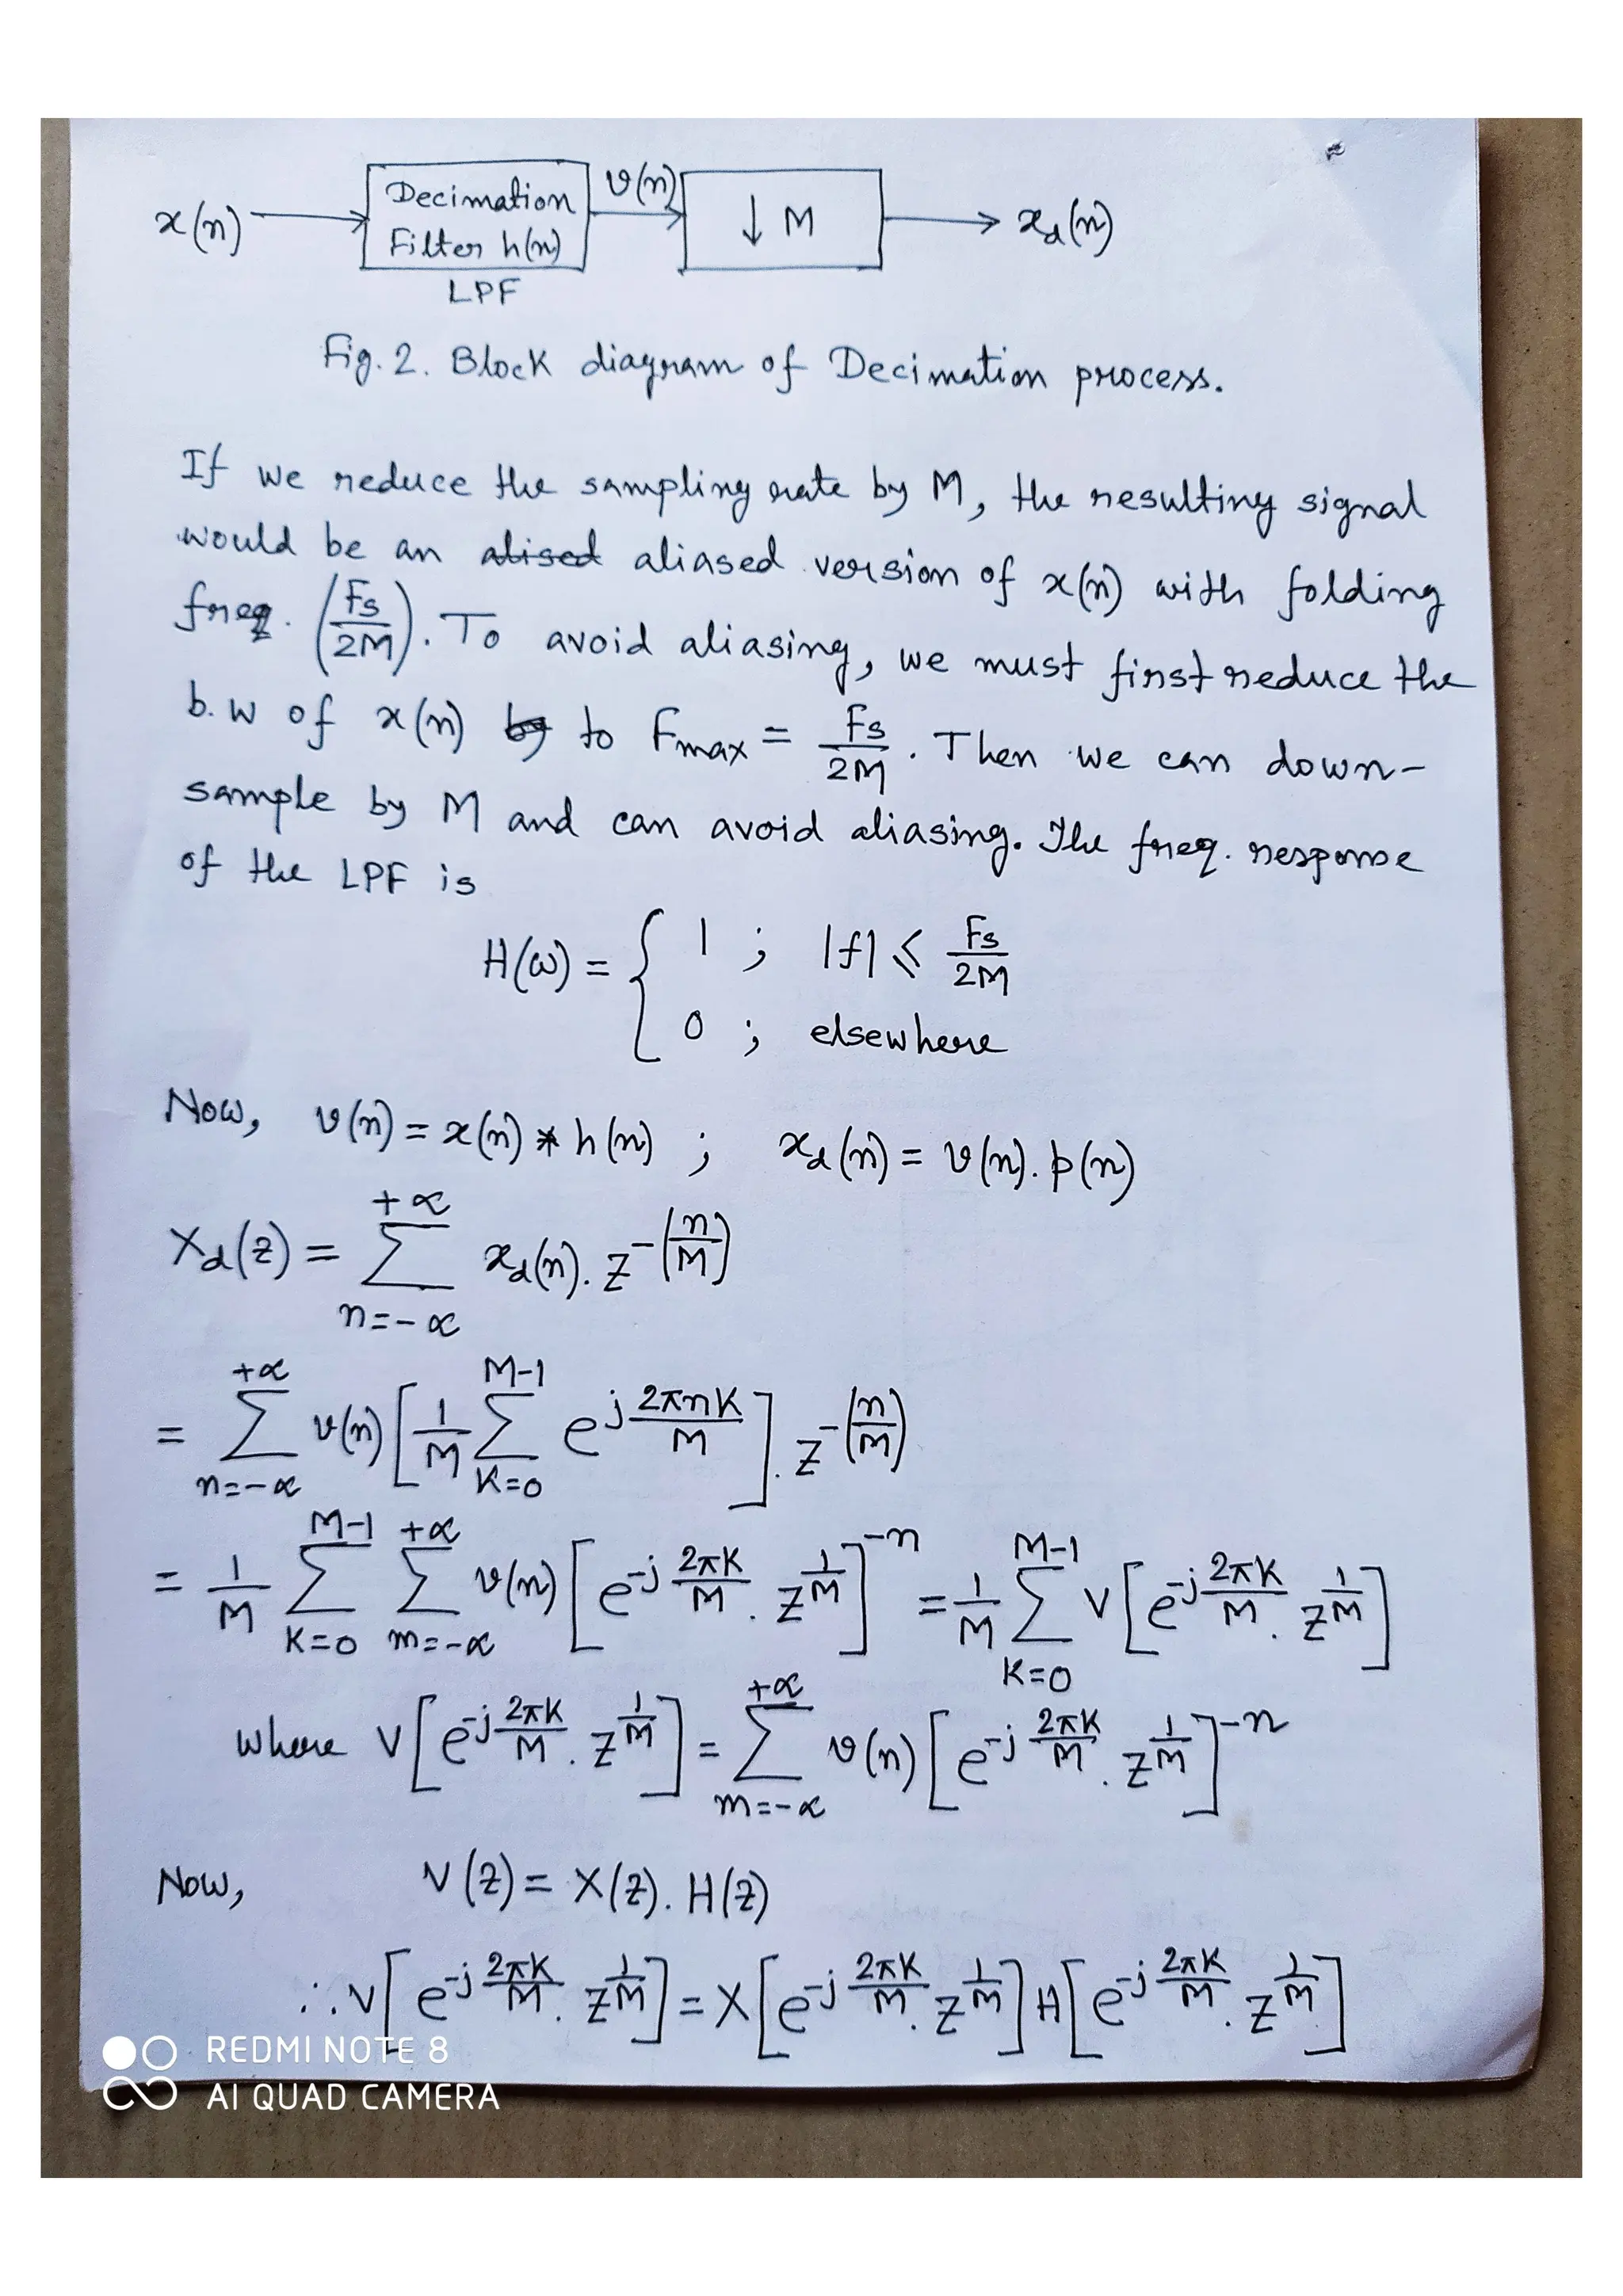 x(n) → Decimation Filter h(n) v(n) → ↓ M → x_d(n)
LPF
Fig. 2. Block diagram of Decimation process.
If we reduce the sampling rate by M, the resulting signal
would be an ~~alised~~ aliased version of x(n) with folding
freq. (Fs/2M). To avoid aliasing, we must first reduce the
b.w of x(n) ~~by~~ to Fmax = Fs/2M. Then we can down-
sample by M and can avoid aliasing. The freq. response
of the LPF is
H(ω) = { 1 ; |f| ≤ Fs/2M
0 ; elsewhere
Now, v(n) = x(n) * h(n) ; x_d(n) = v(n). p(n)
X_d(z) = Σ_{n=-∝}^{+∝} x_d(n). z^{-(n/M)}
= Σ_{n=-∝}^{+∝} v(n) [1/M Σ_{K=0}^{M-1} e^{j 2πnK/M}]. z^{-(n/M)}
= 1/M Σ_{K=0}^{M-1} Σ_{m=-∝}^{+∝} v(n) [e^{-j 2πK/M}. z^{1/M}]^{-n} = 1/M Σ_{K=0}^{M-1} V[e^{-j 2πK/M}. z^{1/M}]
where V[e^{-j 2πK/M}. z^{1/M}] = Σ_{m=-∝}^{+∝} v(n) [e^{-j 2πK/M}. z^{1/M}]^{-n}
Now, V(z) = X(z). H(z)
∴ V[e^{-j 2πK/M}. z^{1/M}] = X[e^{-j 2πK/M}. z^{1/M}] H[e^{-j 2πK/M}. z^{1/M}]
REDMI NOTE 8
AI QUAD CAMERA